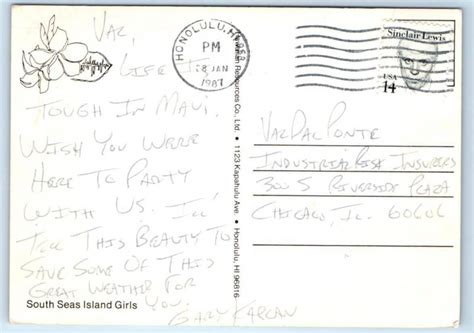 Val,
Life Is
Tough In Maui.
Wish You Were
Here To Party
With Us. I'll
Tell This Beauty To
Save Some Of This
Great Weather For
You.
Gary Kaplan
South Seas Island Girls
Hawaiian Resources Co., Ltd. • 1123 Kapahulu Ave. • Honolulu, HI 96816
HONOLULU, HI 968
PM
28 JAN
1987
Sinclair Lewis
USA
14
Val Pal Ponte
Industrial Risk Insurers
300 S Riverside Plaza
Chicago, IL. 60606